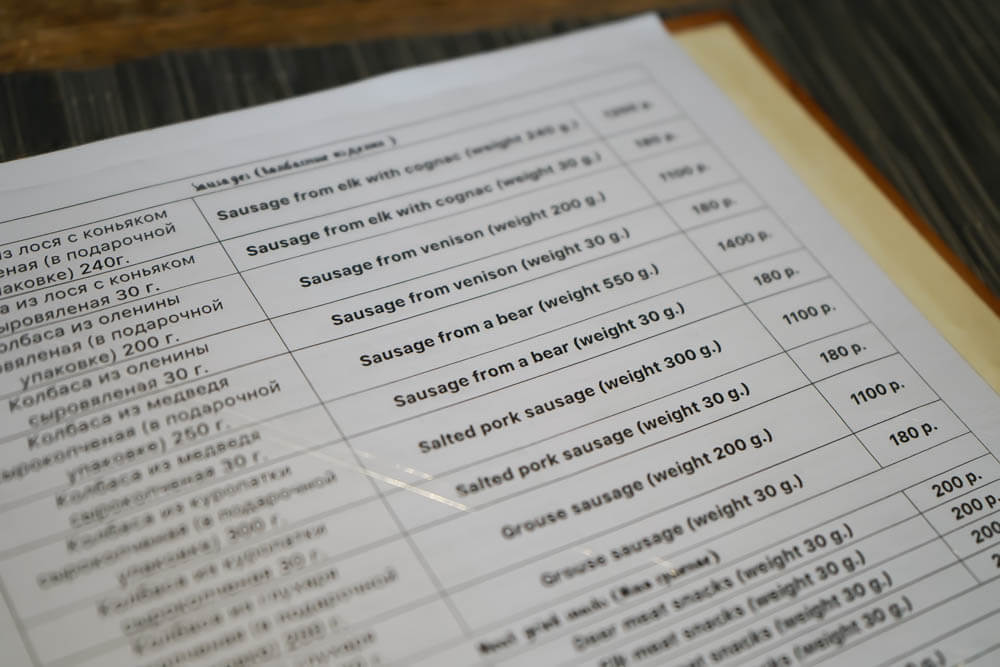 Sausages (Колбасные изделия)
из лося с коньяком
еная (в подарочной
паковке) 240г.
Sausage from elk with cognac (weight 240 g.)
а из лося с коньяком
ыровяленая 30 г.
Sausage from elk with cognac (weight 30 g.)
180 р.
олбаса из оленины
овяленая (в подарочной
упаковке) 200 г.
Sausage from venison (weight 200 g.)
1100 р.
Колбаса из оленины
сыровяленая 30 г.
Sausage from venison (weight 30 g.)
180 р.
Колбаса из медведя
ырокопченая (в подарочной
упаковке) 250 г.
Sausage from a bear (weight 550 g.)
1400 р.
Колбаса из медведя
сырокопченая 30 г.
Sausage from a bear (weight 30 g.)
180 р.
Колбаса из куропатки
сырокопченая (в подарочной
упаковке) 300 г.
Salted pork sausage (weight 300 g.)
1100 р.
Колбаса из куропатки
сырокопченая 30 г.
Salted pork sausage (weight 30 g.)
180 р.
Колбаса из глухаря
(в подарочной
200 г.
Grouse sausage (weight 200 g.)
1100 р.
Grouse sausage (weight 30 g.)
180 р.
Deer meat snacks (weight 30 g.)
200 р.
Elk meat snacks (weight 30 g.)
200 р.
meat snacks (weight 30 g.)
200
(weight 30 g.)